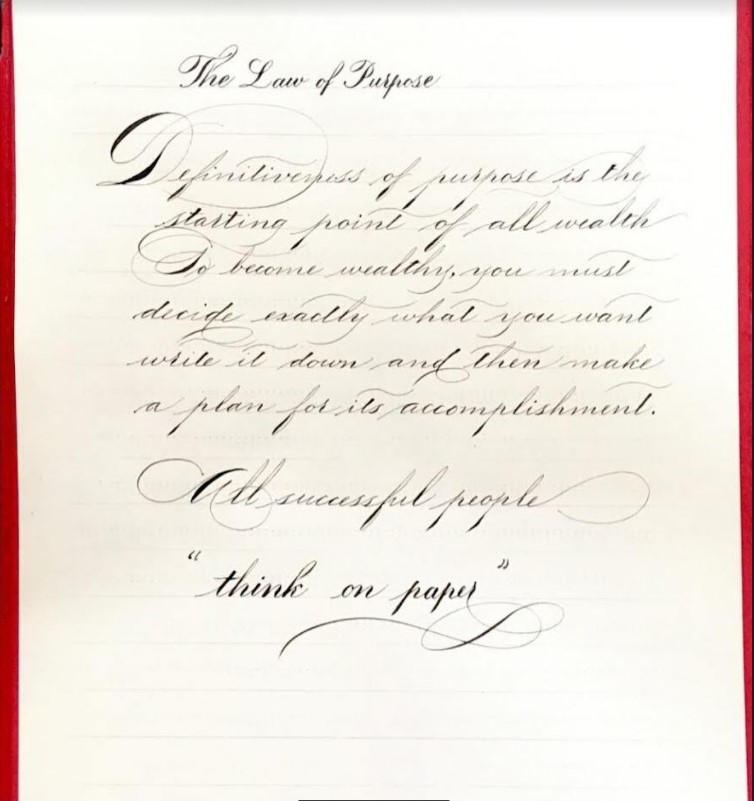 The Law of Purpose
Definitiveness of purpose is the
starting point of all wealth
To become wealthy, you must
decide exactly what you want
write it down and then make
a plan for its accomplishment.
All successful people
“ think on paper ”